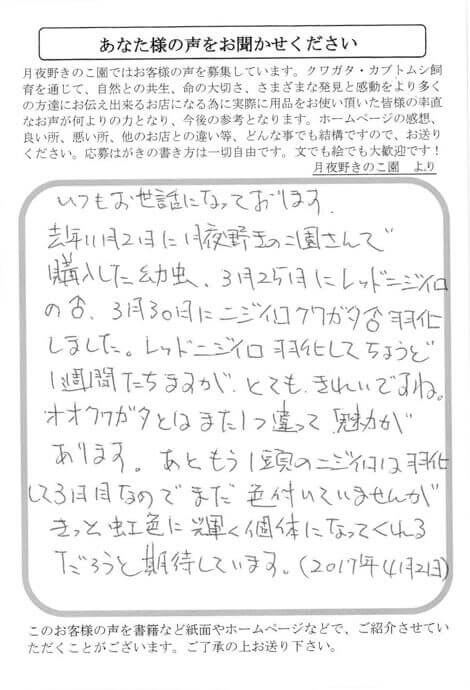 あなた様の声をお聞かせください
月夜野きのこ園ではお客様の声を募集しています。クワガタ・カブトムシ飼
育を通じて、自然との共生、命の大切さ、さまざまな発見と感動をより多く
の方達にお伝え出来るお店になる為に実際に用品をお使い頂いた皆様の率直
なお声が何よりの力となり、今後の参考となります。ホームページの感想、
良い所、悪い所、他のお店との違い等、どんな事でも結構ですので、お送り
ください。応募はがきの書き方は一切自由です。文でも絵でも大歓迎です！
月夜野きのこ園 より
いつもお世話になっております。
去年11月2日に月夜野きのこ園さんで
購入した幼虫、3月25日にレッドニジイロ
の♂、3月30日にニジイロクワガタ♂羽化
しました。レッドニジイロ羽化してちょうど
1週間たちますが、とても、きれいですね。
オオクワガタとはまた1つ違って魅力が
あります。あともう1頭のニジイロは羽化
して3日目なのでまだ色付いていませんが
きっと虹色に輝く個体になってくれる
だろうと期待しています。(2017年4月2日)
このお客様の声を書籍など紙面やホームページなどで、ご紹介させてい
ただくことがございます。ご了承の上お送り下さい。